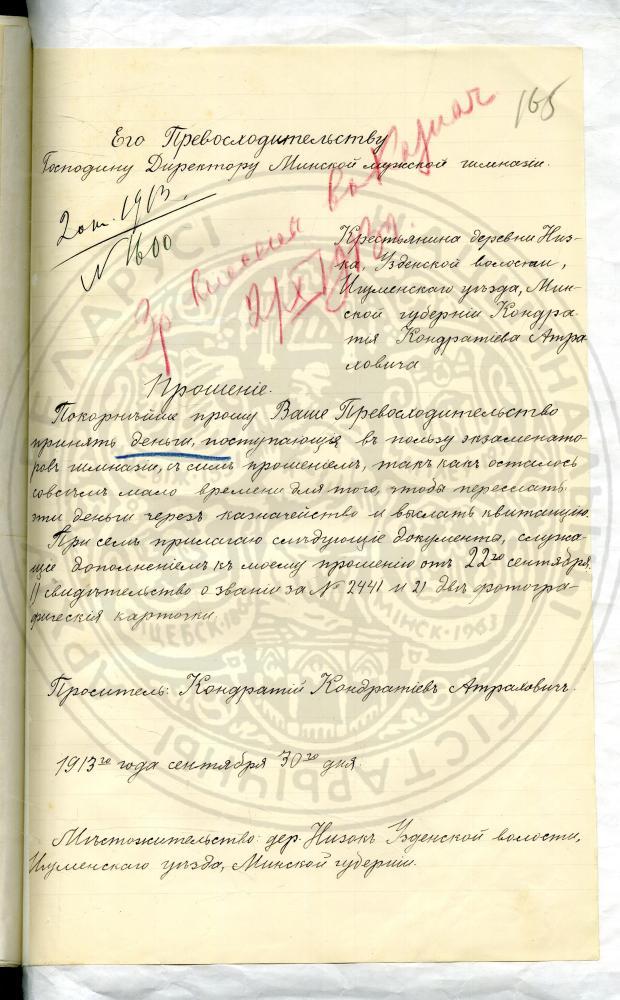 165
Его Превосходительству
Господину Директору Минской мужской гимназіи.
2 окт. 1913.
№ 1600
Крестьянина деревни Низ-
ка, Узденской волости,
Игуменскаго уѣзда, Мин-
ской губерніи Кондра-
тія Кондратіева Атра-
ховича
Прошеніе.
Покорнѣйше прошу Ваше Превосходительство
принять деньги, поступающія въ пользу экзаменато-
ровъ гимназіи, съ симъ прошеніемъ, такъ какъ осталось
совсѣмъ мало времени для того, чтобы переслать
эти деньги черезъ казначейство и выслать квитанцію.
При семъ прилагаю слѣдующіе документы, служа-
щіе дополненіемъ къ моему прошенію отъ 22го сентября.
1) свидѣтельство о званіи за № 2441 и 2) двѣ фотогра-
фическія карточки.
Проситель: Кондратій Кондратіевъ Атраховичъ.
1913го года сентября 30го дня.
Мѣстожительство: дер. Низокъ Узденской волости,
Игуменскаго уѣзда, Минской губерніи.